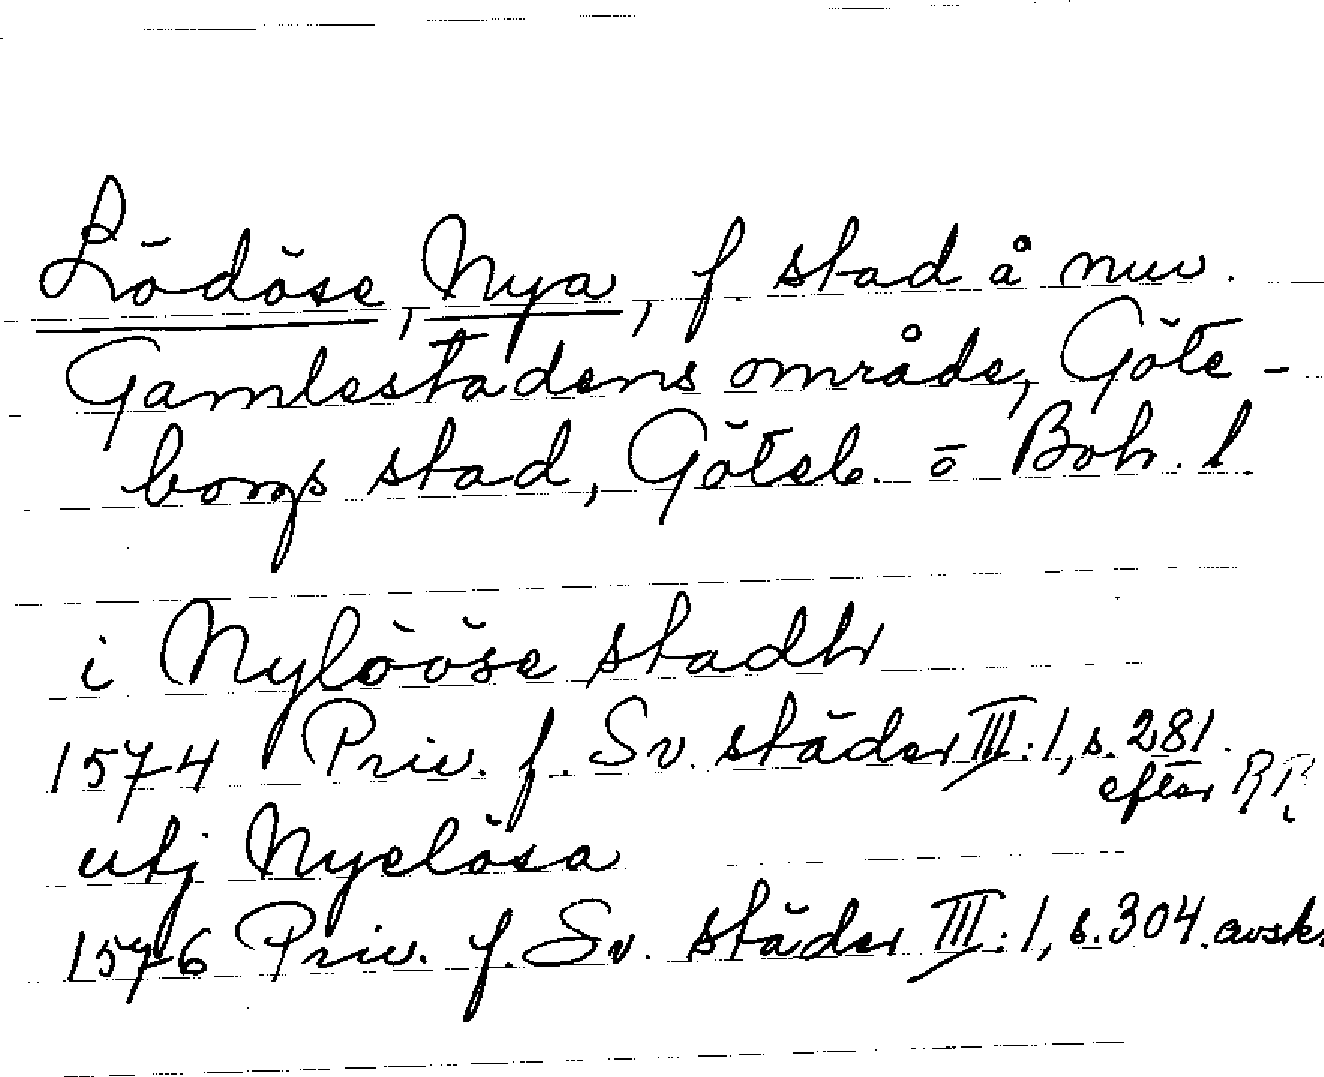 Lödöse, Nya, f. stad å nuv.
Gamlestadens område, Göte-
borgs stad, Göteb. o Boh. l.
i Nylööse stadh
1574 Priv. f. Sv. städer III:1, s. 281.
efter RR
utj Nyelösa
1576 Priv. f. Sv. städer III:1, s. 304. avskr.